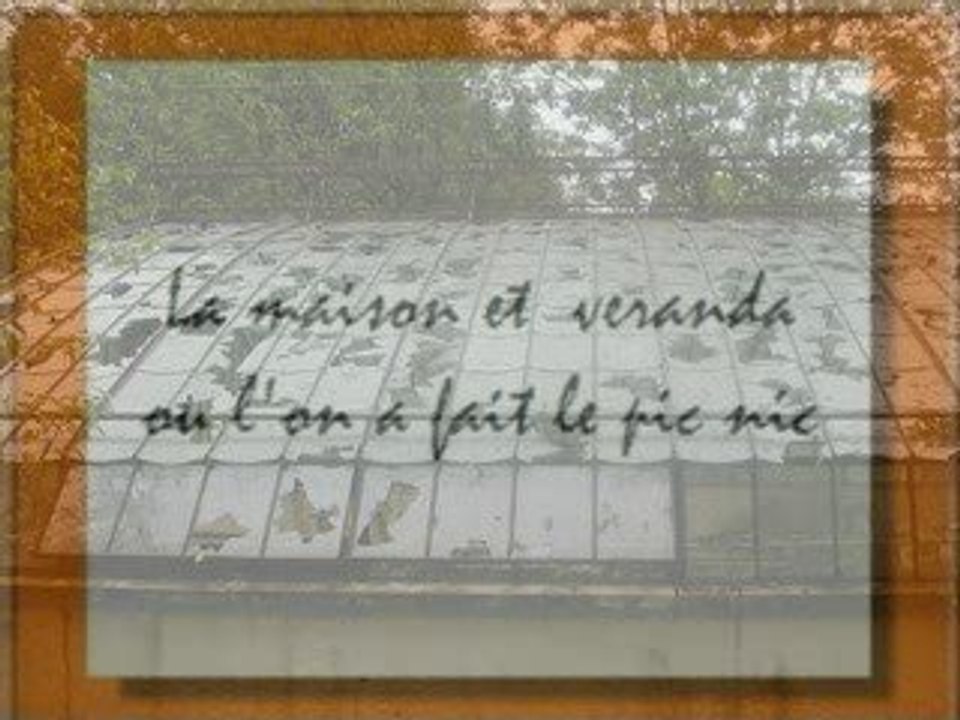 La maison et veranda
ou l'on a fait le pic nic